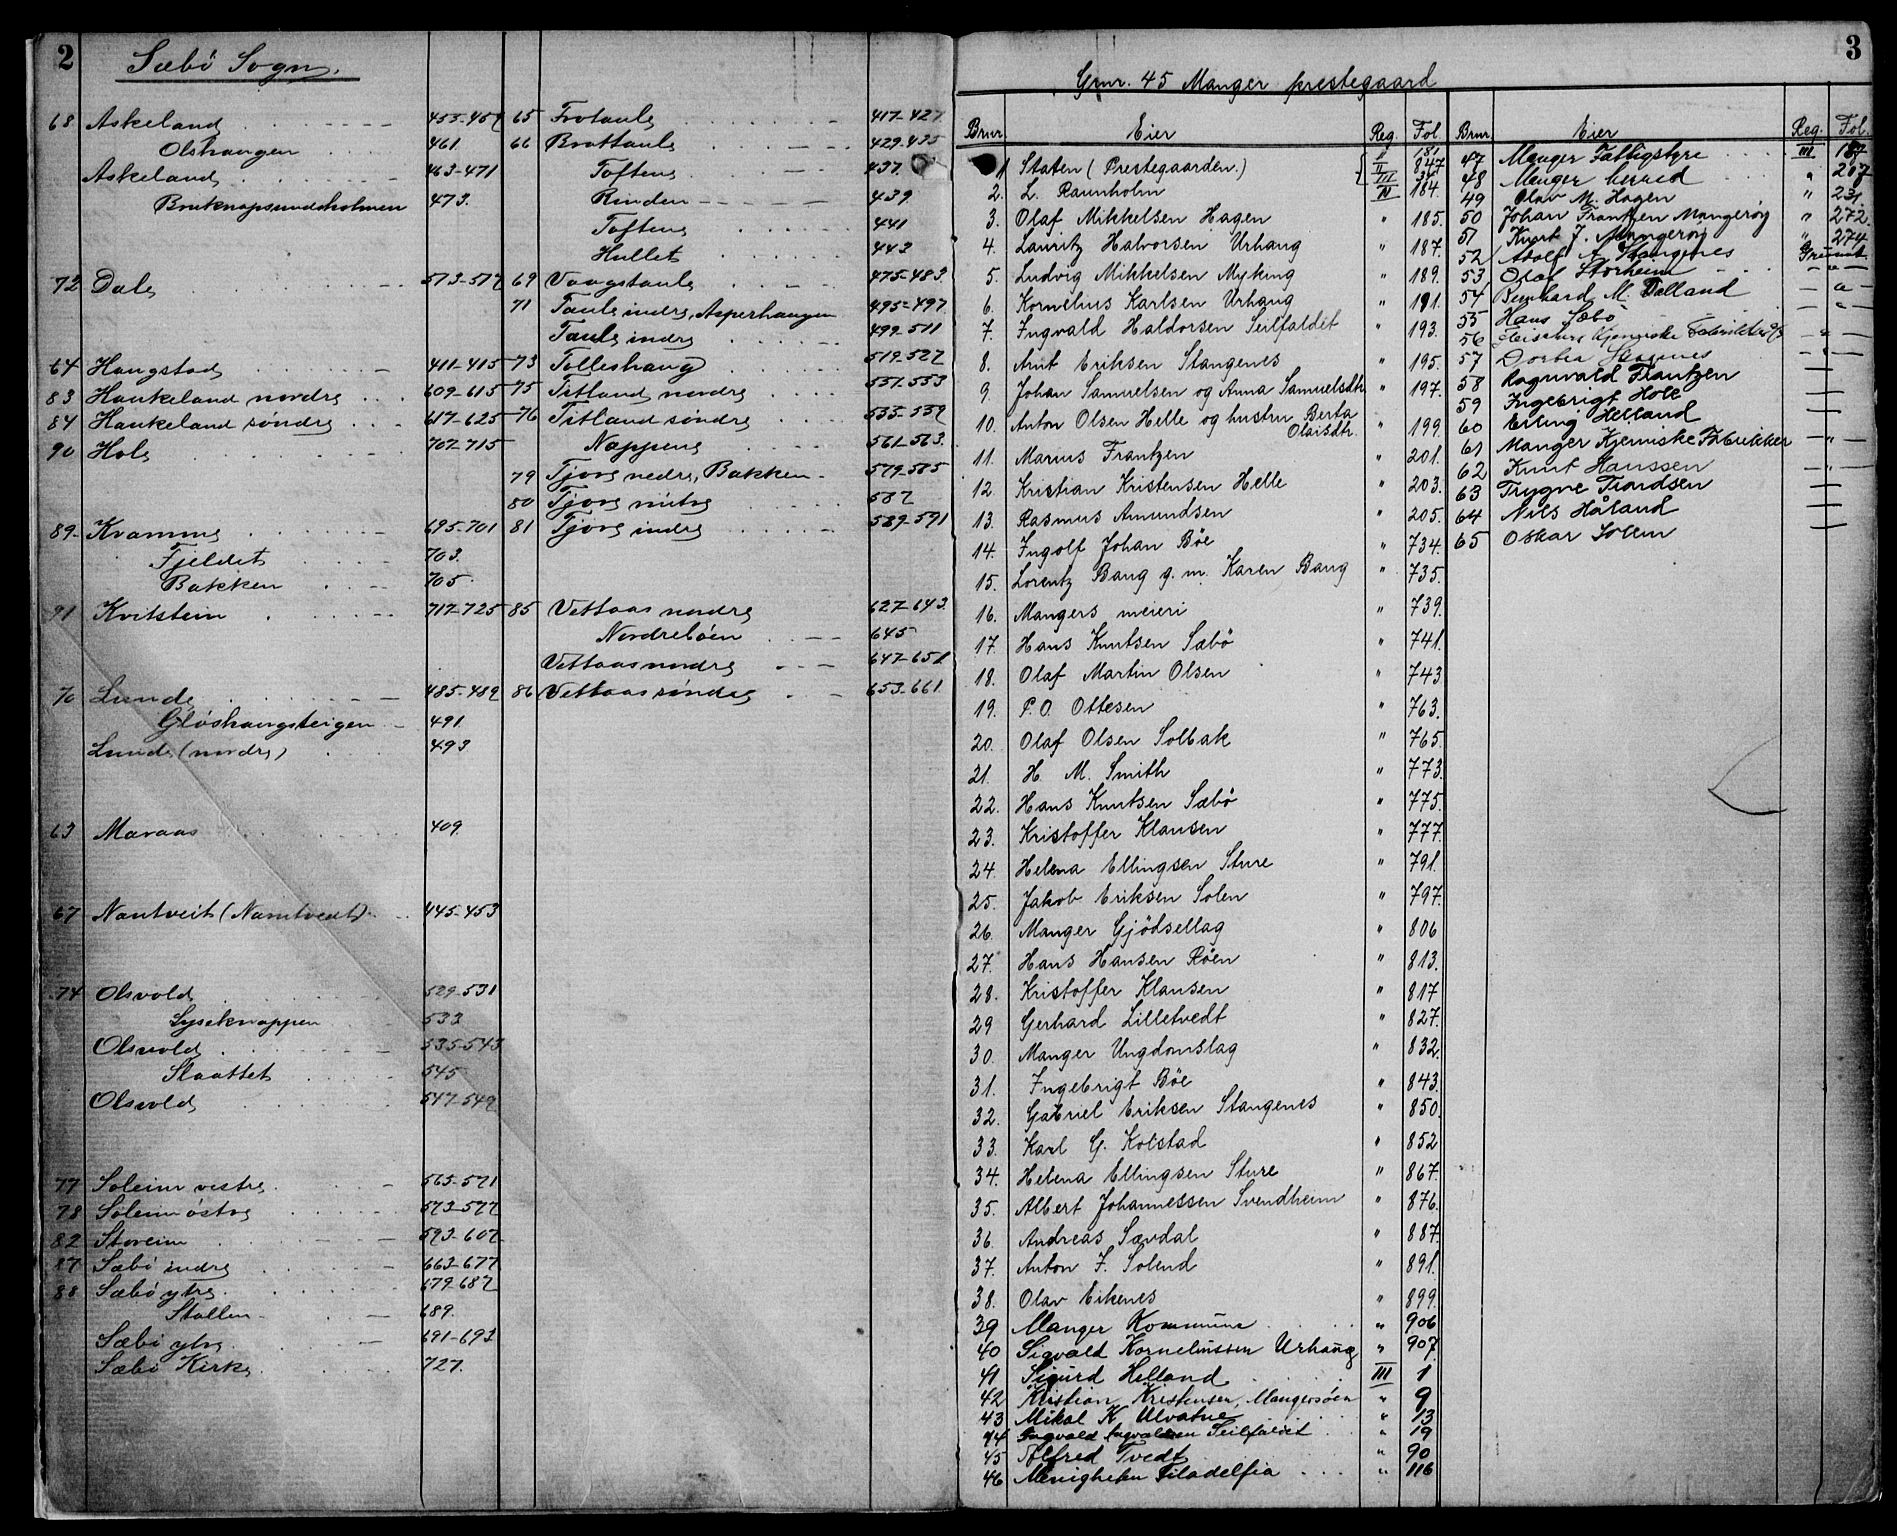 2
Sæbö Sogn.
68 Askeland 455-459
Olshaugen 461
Askeland 463-471
Bruknapsundsholmen 473.
72 Dale 573-577
64 Haugstad 411-415
83 Haukeland nordre 609-615
84 Haukeland søndre 617-625
90 Hole 707-715
89. Kvamme 695-701
Fjeldet 703.
Bakken 705.
91 Kvitstein 717-725
70 Lunde 485-489
Gloshaugsteigen 491.
Lunde (nordre) 493
63 Maraas 409.
67 Nautveit (Namtvedt) 445-453
74 Olsvold 529-531
Lyseknappen 533
Olsvold 535-543
Slaattet 545
Olsvold 547-549
77 Soleim vestre 565-571
78 Soleim östre 573-577
82 Storeim 593-607
87 Sæbö indre 663-677
88 Sæbö ytre 679-687
Stallen 689.
Sæbö ytre 691-693
Sæbö Kirke 727.
65 Frotaule 417-427
66 Brattaule 429-435
Toften 437.
Rinden 439.
Toften 441
Hullet 443
69 Vaagstaule 475-483.
71 Taule indre, Asperhaugen 495-497
Taule indre 499-511
73 Tolleshaug 519-527
75 Titland nordre 551-553
76 Titland søndre
Nappen 561-563.
79 Tjore nedre, Bakken 579-585
80 Tjore mitre 587
81 Tjore indre 589-591
85 Vettaas nordre 627-643.
Nordrebøen 645
Vettaas nordre 647-651
86 Vettaas søndre 653-661
3
Grnr. 45 Manger prestegaard
Brnr. Eier Reg. Fol.
1 Staten (Prestegaarden.) II 847 III
2. L. Raunholm IV 184.
3. Olaf Mikkelsen Hagen " 185.
4. Lauritz Halvorsen Urhaug " 187.
5. Ludvig Mikkelsen Myking " 189.
6. Kornelius Karlsen Urhaug " 191.
7. Ingvald Haldorsen Seilfaldet " 193.
8. Arnt Eriksen Stangenes " 195.
9. Johan Samuelsen og Anna Samuelsdtr. " 197.
10. Anton Olsen Helle og hustru Berta Olaisdtr. " 199.
11. Marius Frantzen " 201.
12. Kristian Kristensen Helle " 203.
13. Rasmus Amundsen " 205.
14. Ingolf Johan Böe " 734.
15. Lorentz Bang g. m. Karen Bang " 735.
16. Mangers meieri " 739.
17. Hans Knutsen Sæbö " 741.
18. Olaf Martin Olsen " 743
19. P. O. Ottesen " 763.
20. Olaf Olsen Solbak " 765.
21. H. M. Smith " 773.
22. Hans Knutsen Sæbö " 775.
23. Kristoffer Klausen " 777.
24. Helena Ellingsen Sture " 791.
25. Jakob Eriksen Solen " 797.
26. Manger Gjödsellag " 806
27. Hans Hansen Röen " 813.
28. Kristoffer Klausen " 817
29 Gerhard Lilletvedt " 827.
30. Manger Ungdomslag " 832.
31. Ingebrigt Böe " 843.
32. Gabriel Eriksen Stangenes " 850.
33. Karl G. Kolstad " 852
34. Helena Ellingsen Sture " 867.
35. Albert Johannessen Svendheim " 876.
36. Andreas Sævdal " 887.
37. Anton J. Solend " 891.
38. Olav Eikenes " 899.
39 Manger Kommune " 906
40 Sigvald Korneliussen Urhaug " 907.
41 Sigurd Helland III 1
42 Kristian Kristensen, Mangersöen " 9
43 Mikal K. Ulvatne " 13
44 Ingvald Ingvaldsen Seilfaldet " 19
45 Alfred Tvedt " 90
46 Menigheten Filadelfia " 116
Brnr. Eier Reg. Fol.
47 Manger Fattigstyre III
48 Manger herred " 207
49 Olav M. Hagen " 231
50 Johan Frantzen Mangeröy " 272.
51 Knut J. Mangeröy " 274.
52 Adolf A. Stangenes Grunnb.
53 Olaf Storheim — " —
54 Bernhard M. Dalland — " —
55 Hans Sæbö — " —
56 Kjemiske — " —
57 Dorthea Stagenes — " —
58 Ragnvald Frantzen —
59 Ingebrigt Hole —
60 Erling Helland —
61 Manger Kjemiske Fabrikker — " —
62 Knut Hanssen — " —
63 Trygve Fjordsen —
64 Nils Håland —
65 Oskar Solem —